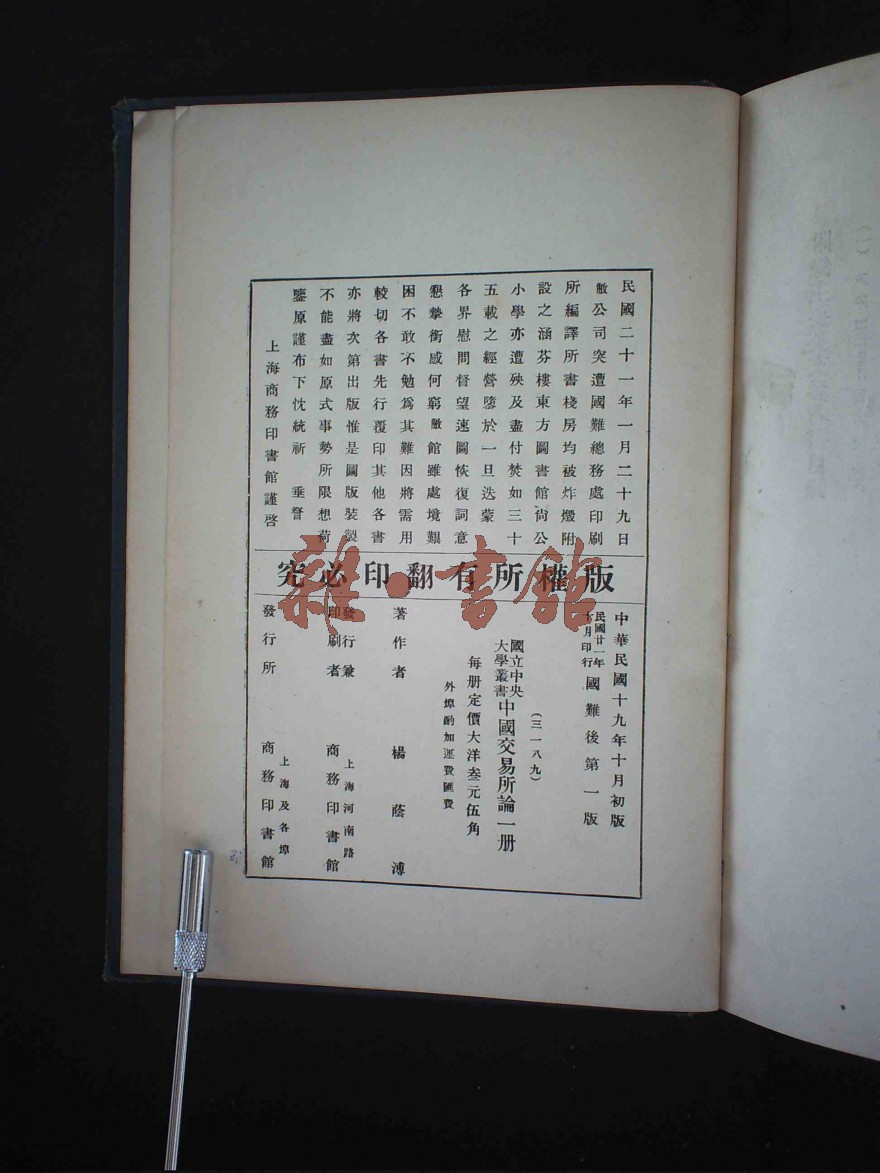 民國二十一年一月二十九日
敝公司突遭國難總務處印刷
所編譯所書棧房均被炸燬附
設之涵芬樓東方圖書館尙公
小學亦遭殃及盡付焚如三十
五載之經營隳於一旦迭蒙
各界慰問督望速圖恢復詞意
懇摯銜感何窮敝館雖處境艱
困不敢不勉爲其難因將需用
較切各書先行覆印其他各書
亦將次第出版惟是圖版裝製
不能盡如原式事勢所限想荷
鑒原謹布下忱統祈 垂詧
上海商務印書館謹啓
版權所有翻印必究
雜·書館
中華民國十九年十月初版
民國廿一年十月印行 國難後第一版
(三一八九)
國立中央大學叢書 中國交易所論一册
每册定價大洋叁元伍角
外埠酌加運費匯費
著作者 楊蔭溥
發行兼印刷者 上海河南路 商務印書館
發行所 上海及各埠 商務印書館